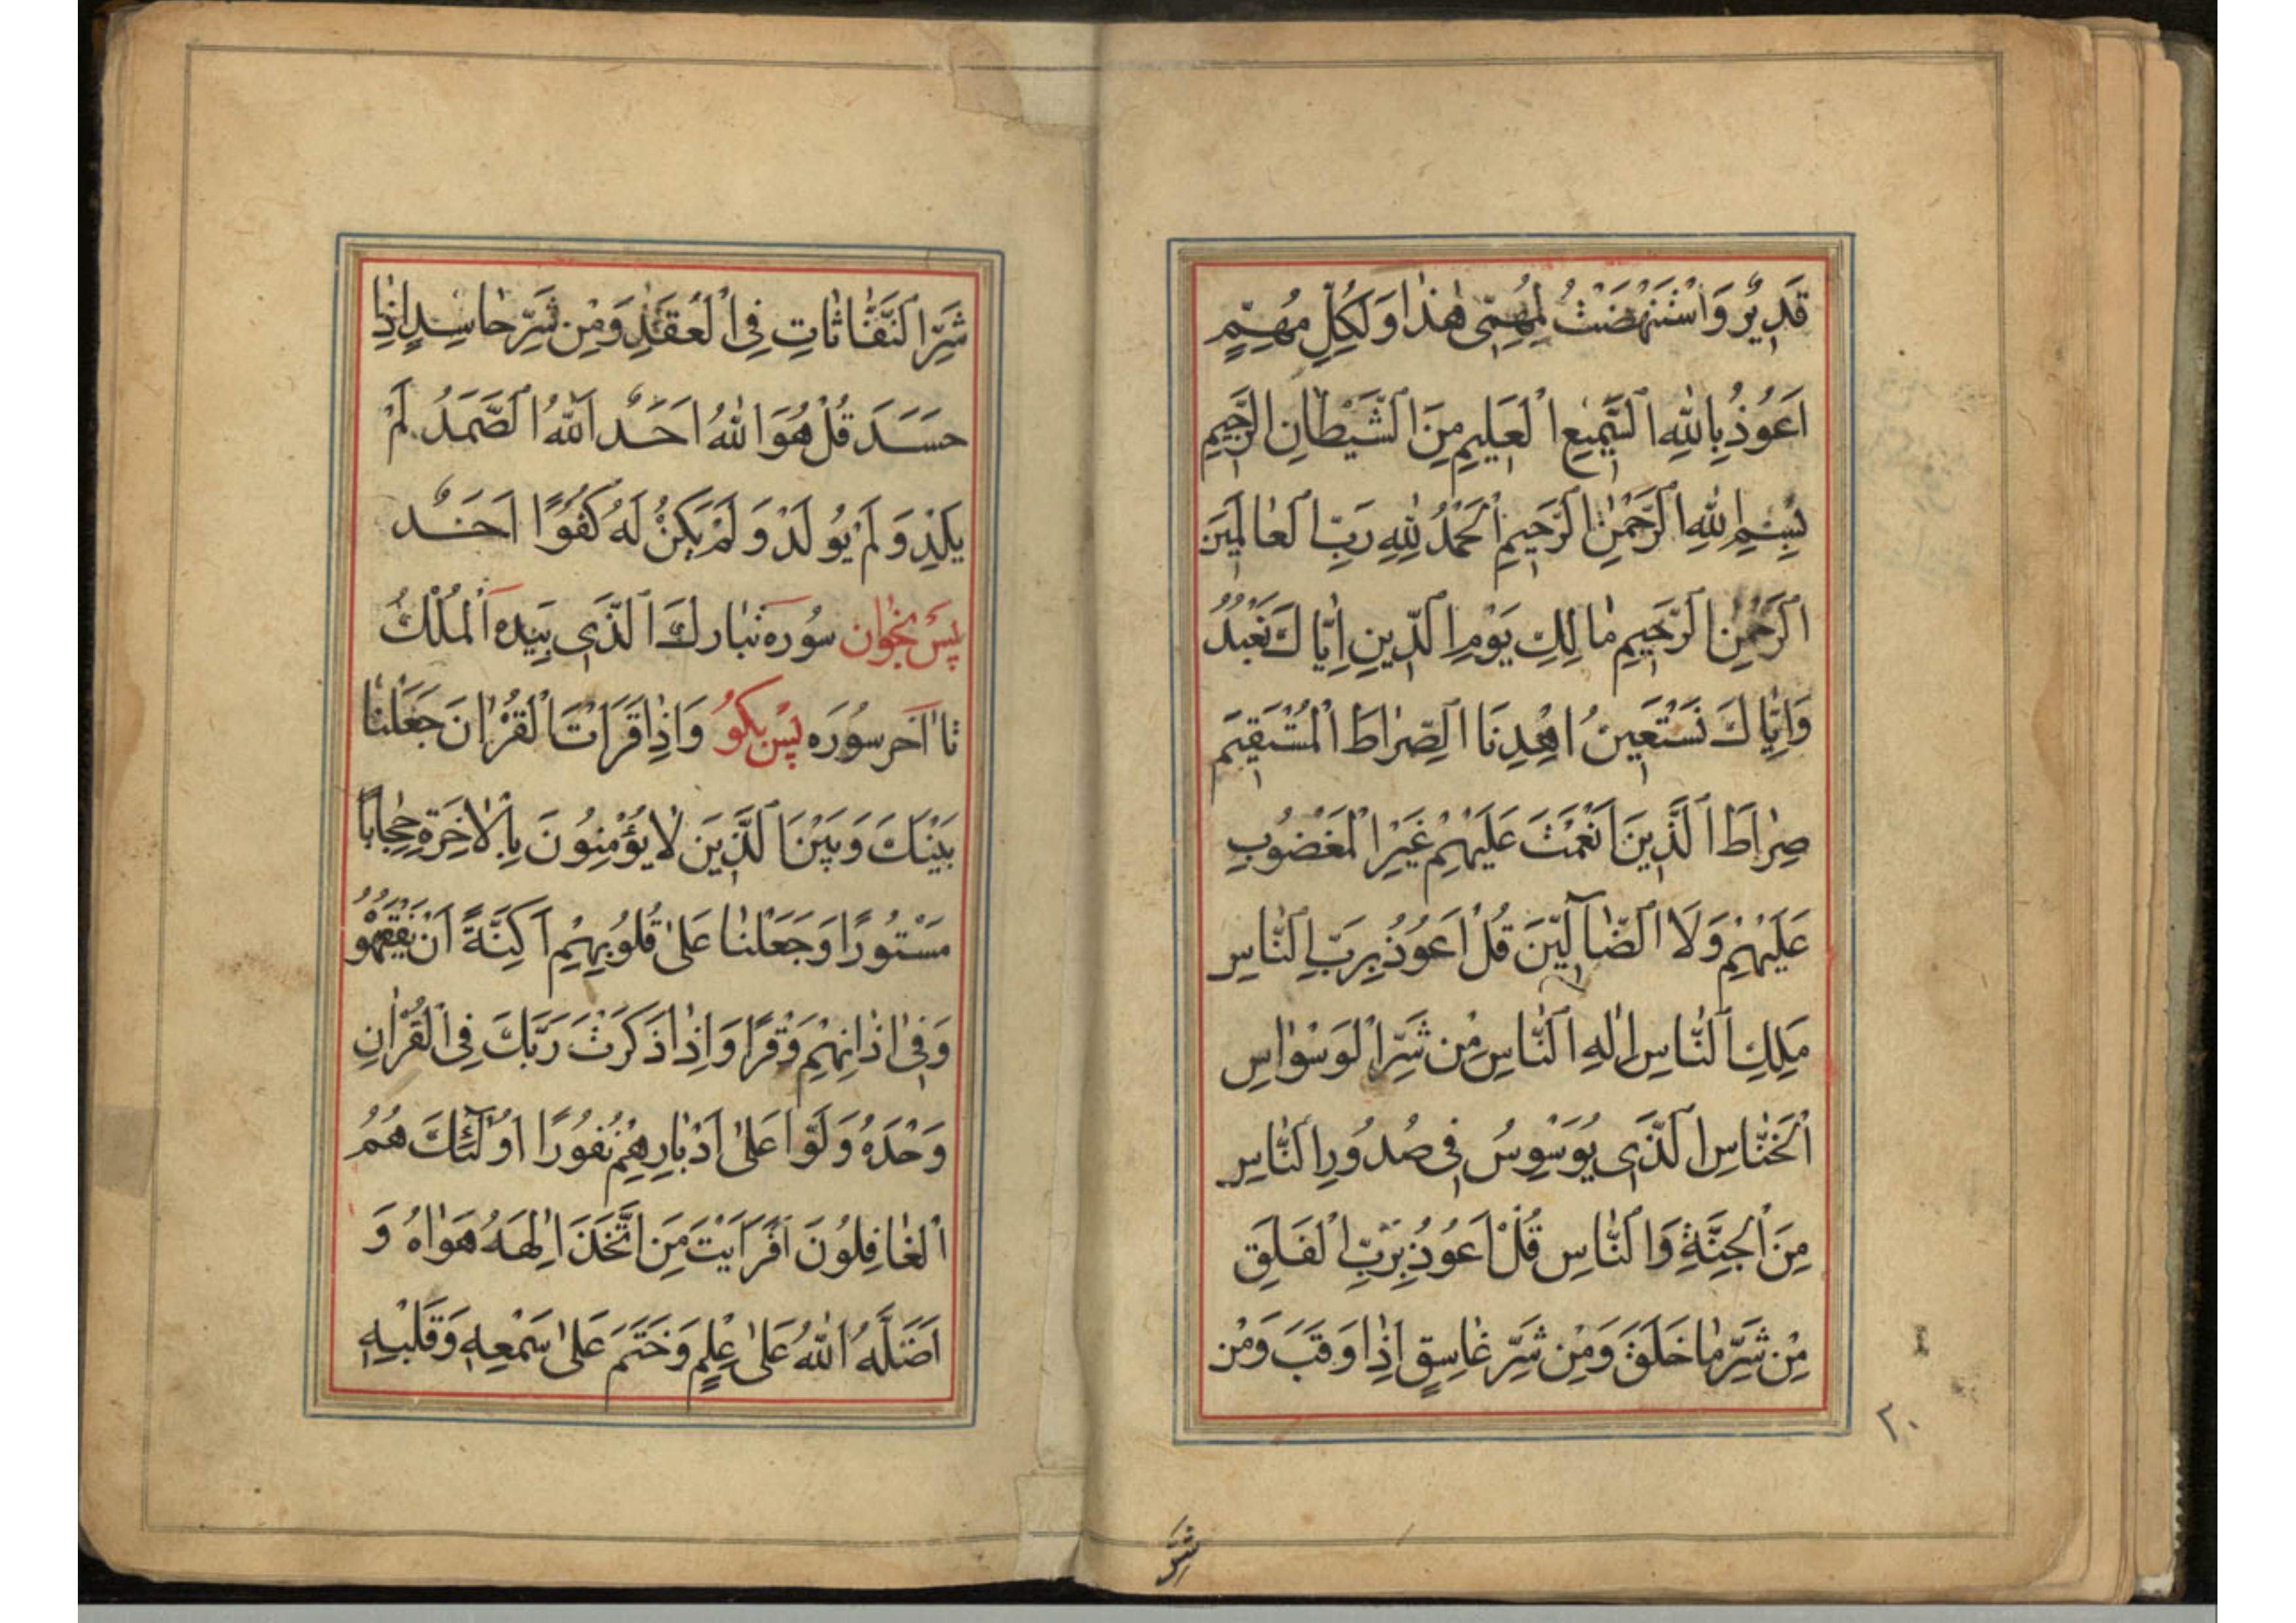 قَدِيرٌ وَاسْتَنْهَضْتُ لِمُهِمّى هٰذَا وَلِكُلِّ مُهِمٍّ
اَعُوذُ بِاللّٰهِ السَّمِيعِ الْعَلِيمِ مِنَ الشَّيْطَانِ الرَّجِيمِ
بِسْمِ اللّٰهِ الرَّحْمٰنِ الرَّحِيمِ اَلْحَمْدُ لِلّٰهِ رَبِّ الْعَالَمِينَ
الرَّحْمٰنِ الرَّحِيمِ مَالِكِ يَوْمِ الدِّينِ اِيَّاكَ نَعْبُدُ
وَاِيَّاكَ نَسْتَعِينُ اِهْدِنَا الصِّرَاطَ الْمُسْتَقِيمَ
صِرَاطَ الَّذِينَ اَنْعَمْتَ عَلَيْهِمْ غَيْرِ الْمَغْضُوبِ
عَلَيْهِمْ وَلَا الضَّآلِّينَ قُلْ اَعُوذُ بِرَبِّ النَّاسِ
مَلِكِ النَّاسِ اِلٰهِ النَّاسِ مِنْ شَرِّ الْوَسْوَاسِ
الْخَنَّاسِ الَّذِى يُوَسْوِسُ فِى صُدُورِ النَّاسِ
مِنَ الْجِنَّةِ وَالنَّاسِ قُلْ اَعُوذُ بِرَبِّ الْفَلَقِ
مِنْ شَرِّ مَا خَلَقَ وَمِنْ شَرِّ غَاسِقٍ اِذَا وَقَبَ وَمِنْ
٢٠
شَرِّ
شَرِّ النَّفَّاثَاتِ فِى الْعُقَدِ وَمِنْ شَرِّ حَاسِدٍ اِذَا
حَسَدَ قُلْ هُوَ اللّٰهُ اَحَدٌ اَللّٰهُ الصَّمَدُ لَمْ
يَلِدْ وَلَمْ يُولَدْ وَلَمْ يَكُنْ لَهُ كُفُوًا اَحَدٌ
پس بخوان سُورَه تَبَارَكَ الَّذِى بِيَدِهِ الْمُلْكُ
تا آخر سُورَه پس بكو وَاِذَا قَرَاْتَ الْقُرْاٰنَ جَعَلْنَا
بَيْنَكَ وَبَيْنَ الَّذِينَ لَا يُؤْمِنُونَ بِالْاٰخِرَةِ حِجَابًا
مَسْتُورًا وَجَعَلْنَا عَلىٰ قُلُوبِهِمْ اَكِنَّةً اَنْ يَفْقَهُوهُ
وَفِى اٰذَانِهِمْ وَقْرًا وَاِذَا ذَكَرْتَ رَبَّكَ فِى الْقُرْاٰنِ
وَحْدَهُ وَلَّوْا عَلىٰ اَدْبَارِهِمْ نُفُورًا اُولٰٓئِكَ هُمُ
الْغَافِلُونَ اَفَرَاَيْتَ مَنِ اتَّخَذَ اِلٰهَهُ هَوَاهُ وَ
اَضَلَّهُ اللّٰهُ عَلىٰ عِلْمٍ وَخَتَمَ عَلىٰ سَمْعِهِ وَقَلْبِهِ